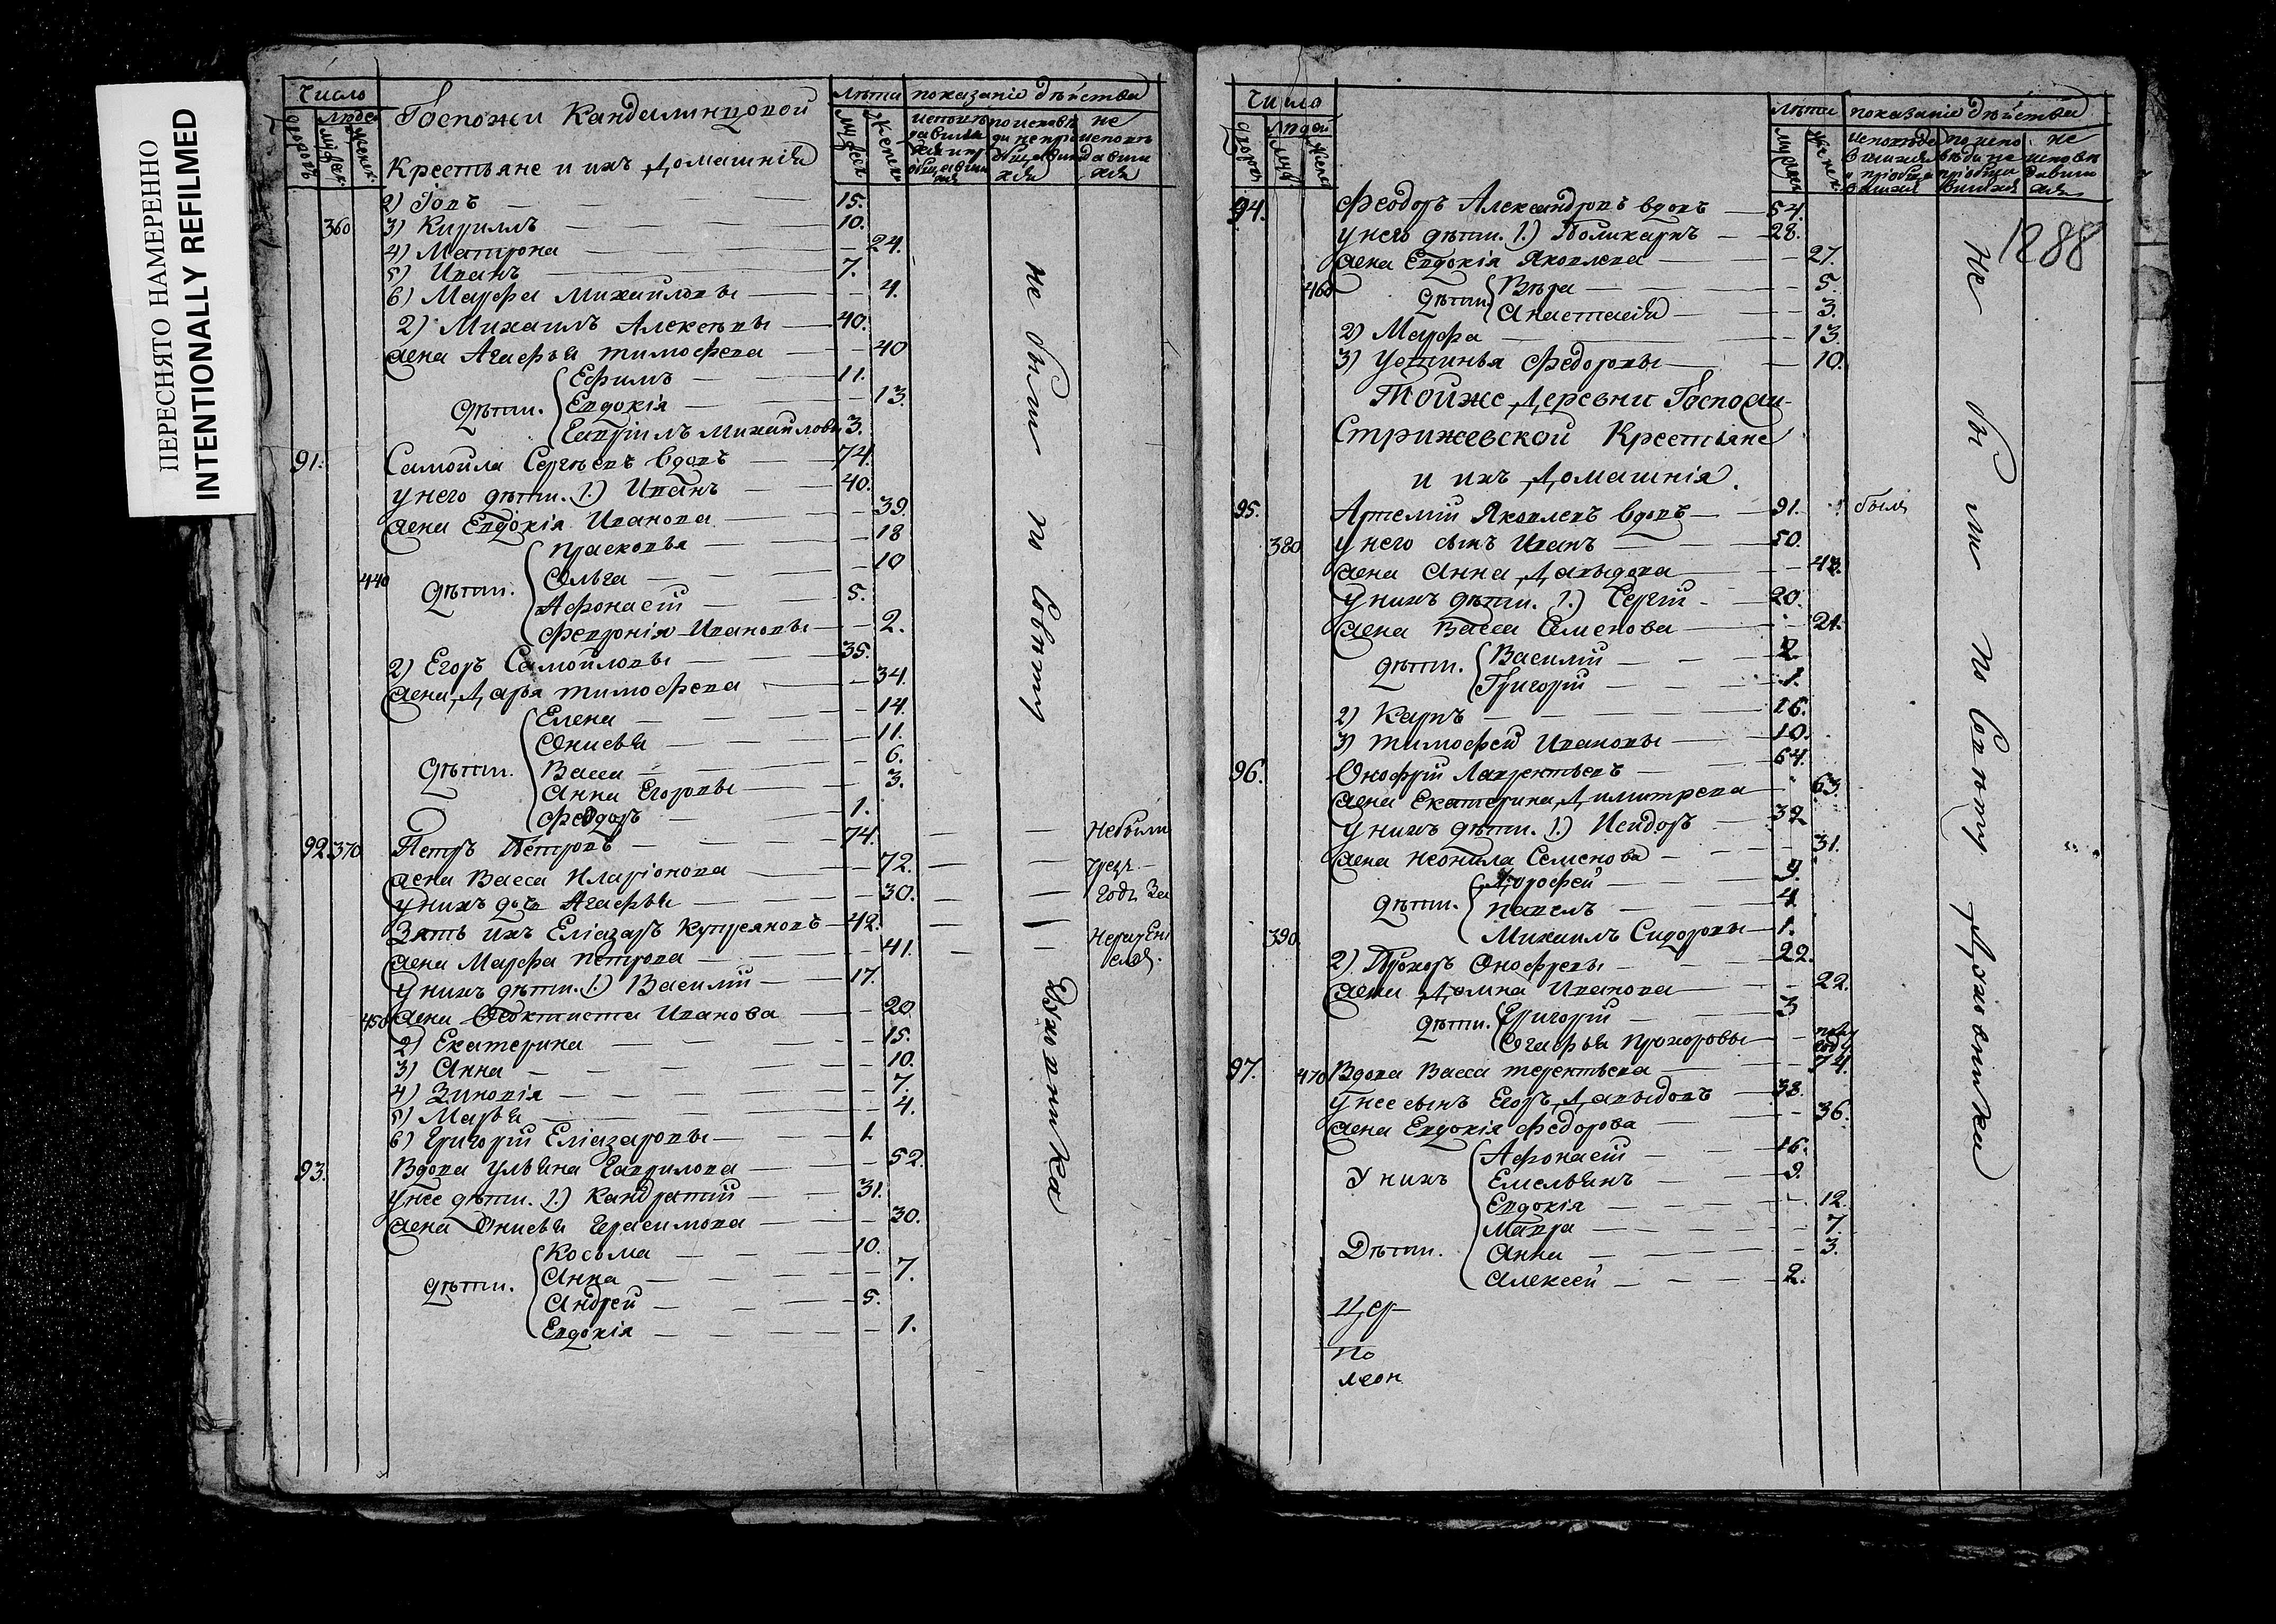 ПЕРЕСНЯТО НАМЕРЕННО
INTENTIONALLY REFILMED
Число
Госпожи
Крестьяне и ихъ Домашнія
лѣта показаніе дѣйства
2) Іовъ 15.
360 3) Кириллъ 10.
4) Матрона 24.
5) Иванъ 7.
6) Марфа Михайловы 4.
2) Михаилъ Алексѣевы 40.
жена Агафья Тимофеева 40
дѣти. Ефимъ 11.
Евдокія 13.
Гавріилъ Михайловы 3.
91. Самойла Сергѣевъ вдовъ 74.
у него дѣти. 1.) Иванъ 40.
жена Евдокія Иванова 39.
Прасковья 18
440 дѣти. Ольга 10
Афонасій 5.
Февронія Ивановы 2.
2) Егоръ Самойловы 35.
жена Дарья Тимофеева 34.
Елена 14.
Онисья 11.
дѣти. Васса 6.
Анна Егоровы 3.
Феодоръ 1.
92. 370 Петръ Петровъ 74. не были
жена Васса Иларіонова 72. чрезъ
у нихъ дочь Агафья 30. годъ за
Зять ихъ Еліазаръ Купреяновъ 42.
жена Марфа Петрова 41.
у нихъ дѣти. 1.) Василій 17.
450 жена Феоктиста Иванова 20
2) Екатерина 15.
3) Анна 10.
4) Зиновія 7.
5) Марья 4.
6) Григорій Еліазаровы 1.
93. Вдова Ульяна Гаврилова 52.
у нее дѣти. 1.) Кандратій 31.
жена Онисья Герасимова 30.
Косьма 10.
дѣти. Анна 7.
Андрей 5.
Евдокія 1.
не были по совѣту Духовника
Число
лѣта показаніе дѣйства
1288
94. Феодоръ Александровъ вдовъ 54.
у него дѣти. 1.) Поликарпъ 28.
жена Евдокія Яковлева 27.
460 дѣти. Вѣра 5.
Анастасія 3.
2) Марфа 13.
3) Устинья Федоровы 10.
Тойже Деревни Госпожи
Стрижевской Крестьяне
и ихъ Домашнія.
95. Артемій Яковлевъ вдовъ 91. былъ
380 у него сынъ Иванъ 50.
жена Анна Давыдова 43.
у нихъ дѣти. 1.) Сергій 20.
жена Васса Семенова 21.
дѣти. Василій 2
Григорій 1.
2) Карпъ 16.
3) Тимофей Ивановы 10.
96. Онофрій Лаврентьевъ 64.
жена Екатерина Димитрева 63.
у нихъ дѣти. 1.) Исидоръ 32
жена Неонила Семенова 31.
Дорофей 9.
дѣти. Павелъ 4.
390. Михаилъ Сидоровы 1.
2) Прохоръ Онофревы 22.
жена Домна Иванова 22.
дѣти. Григорій 3
Огафья Прохоровы
97. 470 Вдова Васса Терентьева 74.
у нее сынъ Егоръ Давыдовъ 38.
жена Евдокія Федорова 36.
Афонасій 16.
У нихъ Емельянъ 9.
Евдокія 12.
Мавра 7.
Дѣти. Анна 3.
Алексей 2.
Цер
По
леон
не были по совѣту Духовника